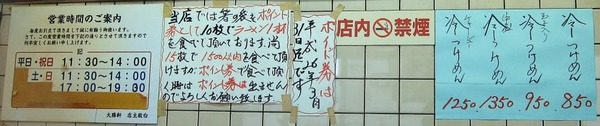 営業時間のご案内
記
平日・祝日 11:30~14:00
土・日 11:30~14:00
17:00~19:00
大勝軒 店主敬白
当店では箸の袋をポイント
券として10枚でラーメン1杯
を食べて頂いております。尚
15枚で1500以内を食べて頂
けますがポイント券で食べて頂
く時はポイント券は出ません
のでよろしくお願い致します
ポイント券は
平成26年3月
31日迄です
店内 禁煙
冷しつけめん 850
冷つけめん 950
冷つけめん 1350
冷しつけめん 1250